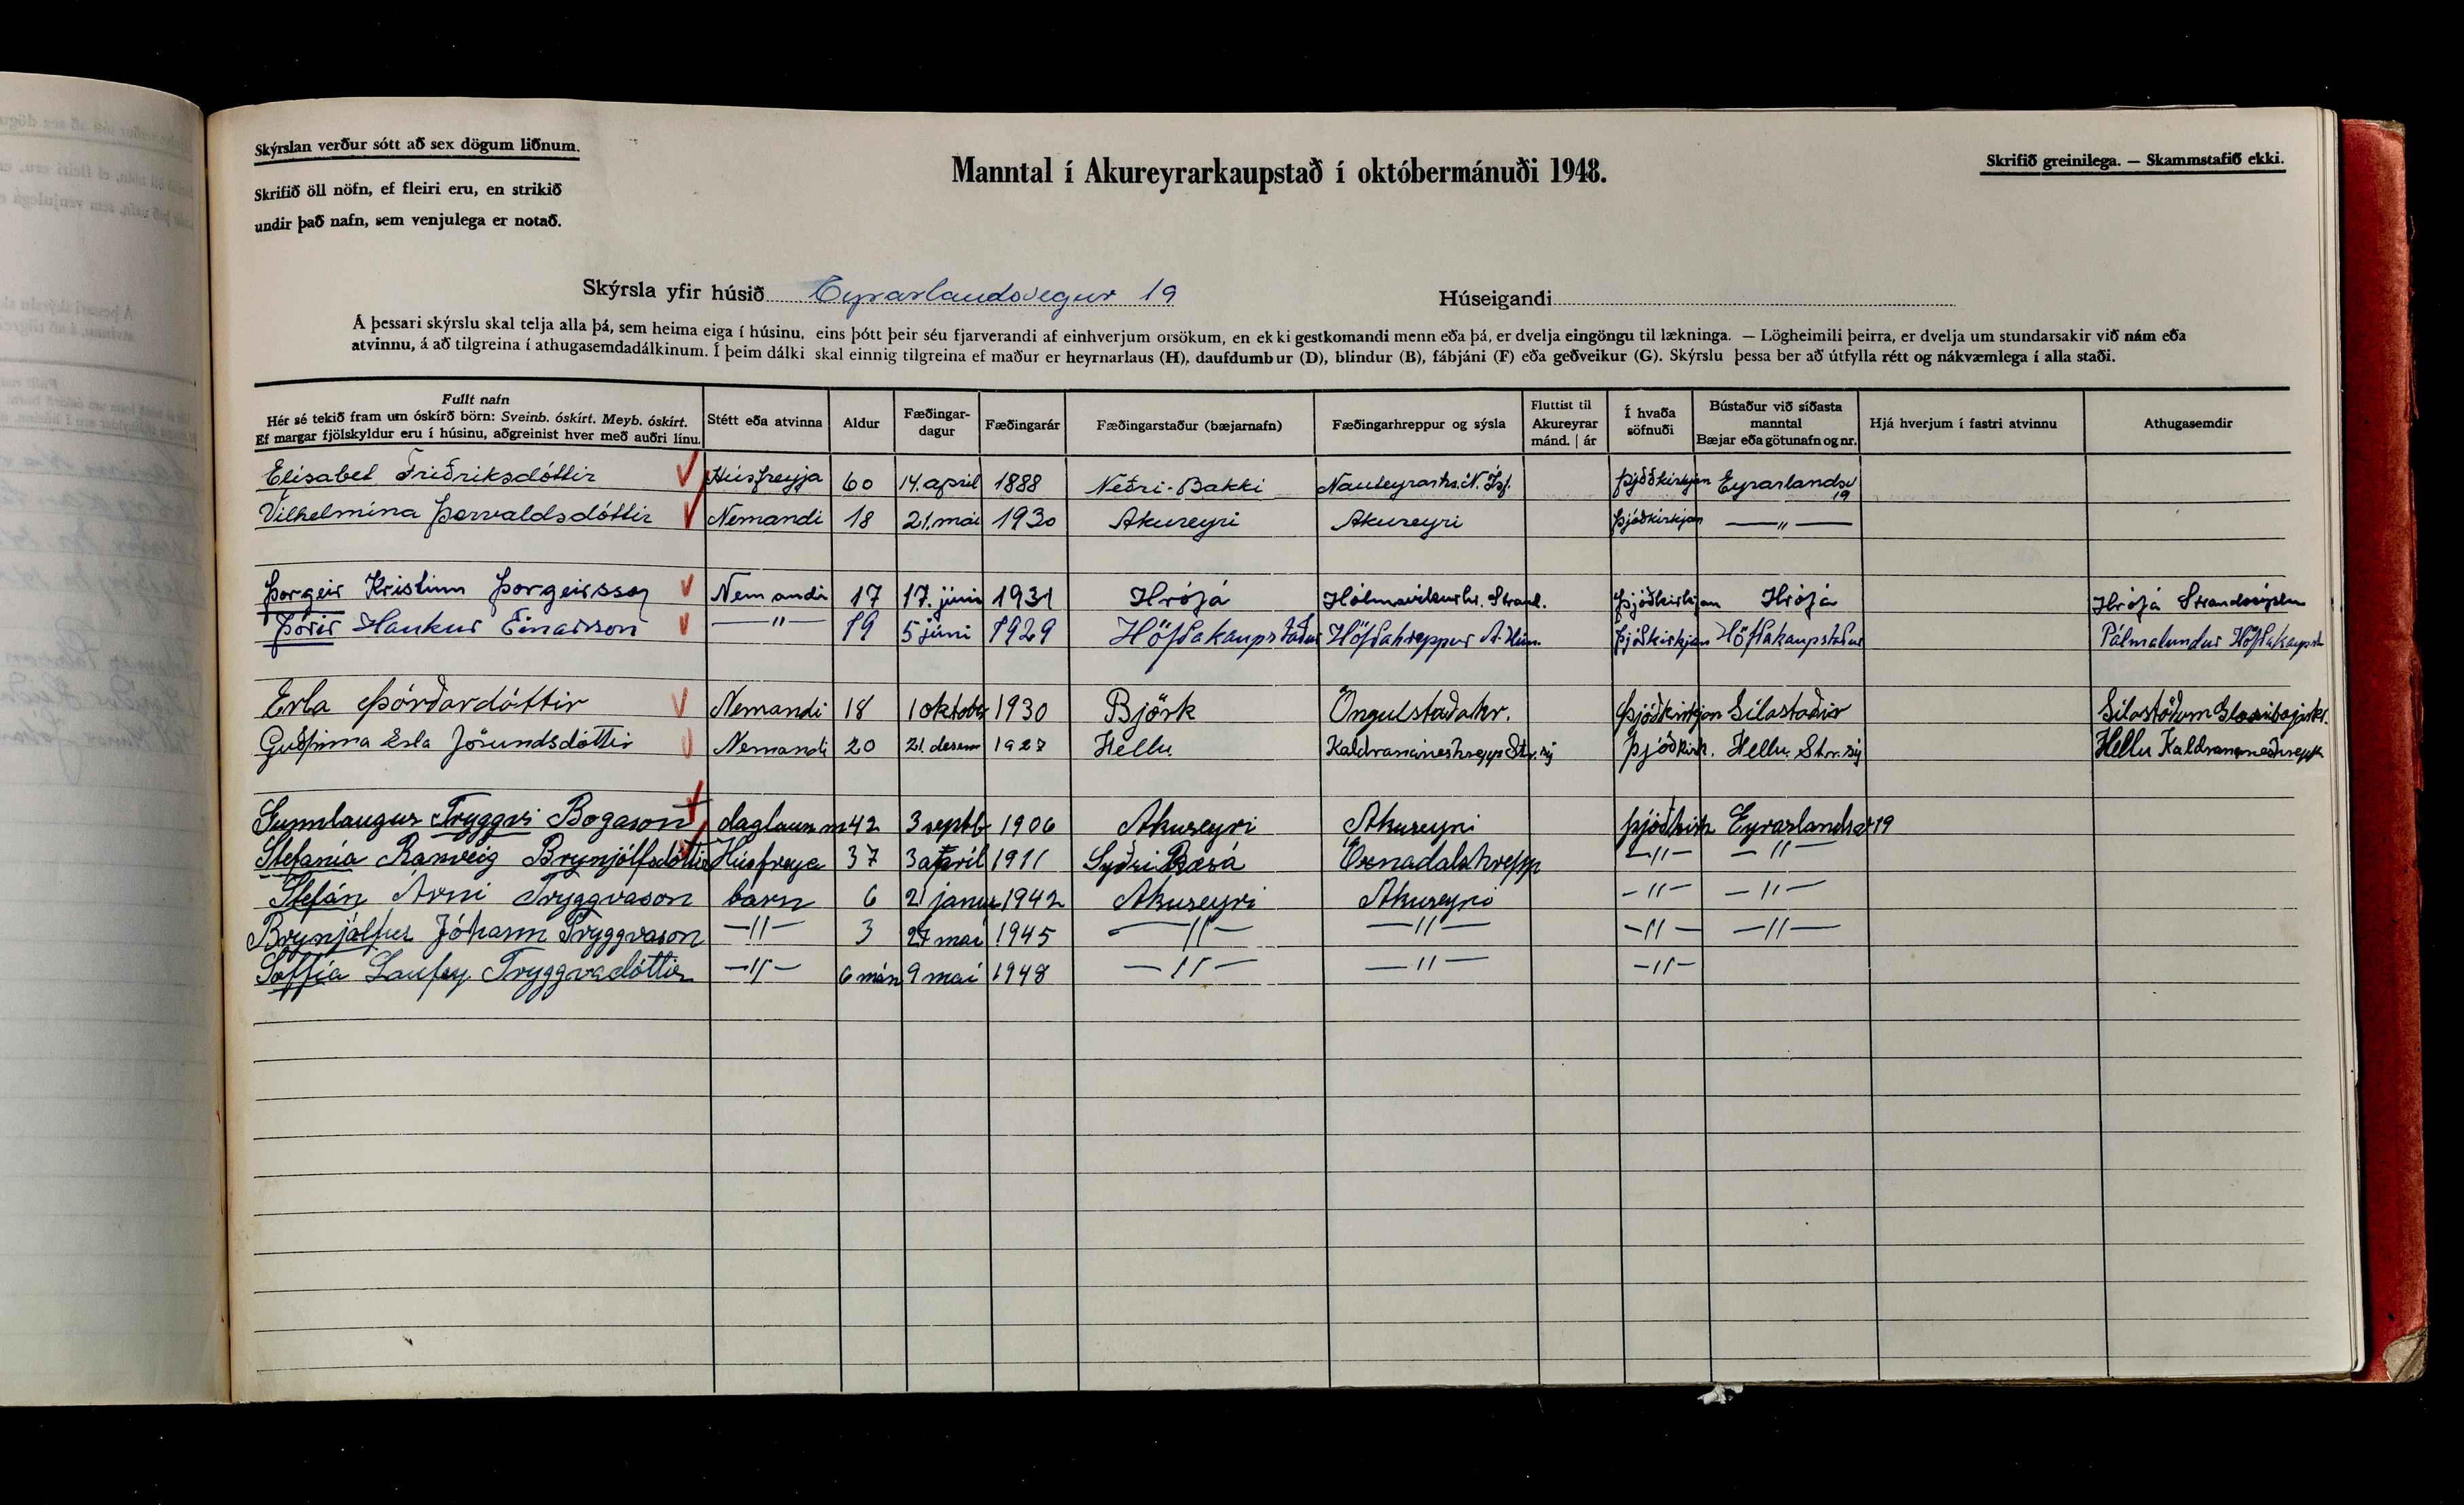 Skýrslan verður sótt að sex dögum liðnum.
Skrifið öll nöfn, ef fleiri eru, en strikið
undir það nafn, sem venjulega er notað.
Manntal í Akureyrarkaupstað í októbermánuði 1948.
Skrifið greinilega. — Skammstafið ekki.
Skýrsla yfir húsið Eyrarlandsvegur 19 Húseigandi
Á þessari skýrslu skal telja alla þá, sem heima eiga í húsinu, eins þótt þeir séu fjarverandi af einhverjum orsökum, en ekki gestkomandi menn eða þá, er dvelja eingöngu til lækninga. — Lögheimili þeirra, er dvelja um stundarsakir við nám eða
atvinnu, á að tilgreina í athugasemdadálkinum. Í þeim dálki skal einnig tilgreina ef maður er heyrnarlaus (H), daufdumbur (D), blindur (B), fábjáni (F) eða geðveikur (G). Skýrslu þessa ber að útfylla rétt og nákvæmlega í alla staði.
Fullt nafn
Hér sé tekið fram um óskírð börn: Sveinb. óskírt. Meyb. óskírt.
Ef margar fjölskyldur eru í húsinu, aðgreinist hver með auðri línu.
Stétt eða atvinna
Aldur
Fæðingar-
dagur
Fæðingarár
Fæðingarstaður (bæjarnafn)
Fæðingarhreppur og sýsla
Fluttist til
Akureyrar
mánd. | ár
Í hvaða
söfnuði
Bústaður við síðasta
manntal
Bæjar eða götunafn og nr.
Hjá hverjum í fastri atvinnu
Athugasemdir
Elísabet Friðriksdóttir Húsfreyja 60 14. apríl 1888 Neðri-Bakki Nauteyrarhr. N. Ísf. Þjóðkirkjan Eyrarlandsv 19
Vilhelmína Þorvaldsdóttir Nemandi 18 21. maí 1930 Akureyri Akureyri Þjóðkirkjan — " —
Þorgeir Kristinn Þorgeirsson Nemandi 17 17. júní 1931 Hrófá Hólmavíkurhr. Strand. Þjóðkirkjan Hrófá Hrófá Strandasýslu
Þórir Haukur Einarsson — " — 19 5 júní 1929 Höfðakaupstaður Höfðahreppur A. Hún. Þjóðkirkjan Höfðakaupstaður Pálmalundur Höfðakaupst
Erla Þórðardóttir Nemandi 18 1 október 1930 Björk Öngulstaðahr. Þjóðkirkjan Sílastaðir Sílastöðum Glæsibæjarhr.
Guðfinna Erla Jörundsdóttir Nemandi 20 21. desem 1927 Hellu Kaldrananeshrepp Str. sý Þjóðkirk. Hellu. Str. sý Hellu Kaldrananeshrepp
Gunnlaugur Tryggvi Bogason daglaunm 42 3 septb 1906 Akureyri Akureyri þjóðkirk Eyrarlandsv 19
Stefanía Ranveig Brynjólfsdóttir Húsfreyja 37 3 apríl 1911 Syðri Bæsá Öxnadalshrepp — " — — " —
Stefán Árni Tryggvason barn 6 21 janu 1942 Akureyri Akureyri — " — — " —
Brynjólfur Jóhann Tryggvason — " — 3 27 maí 1945 — " — — " — — " — — " —
Soffía Laufey Tryggvadóttir — " — 6 mán 9 maí 1948 — " — — " — — " —